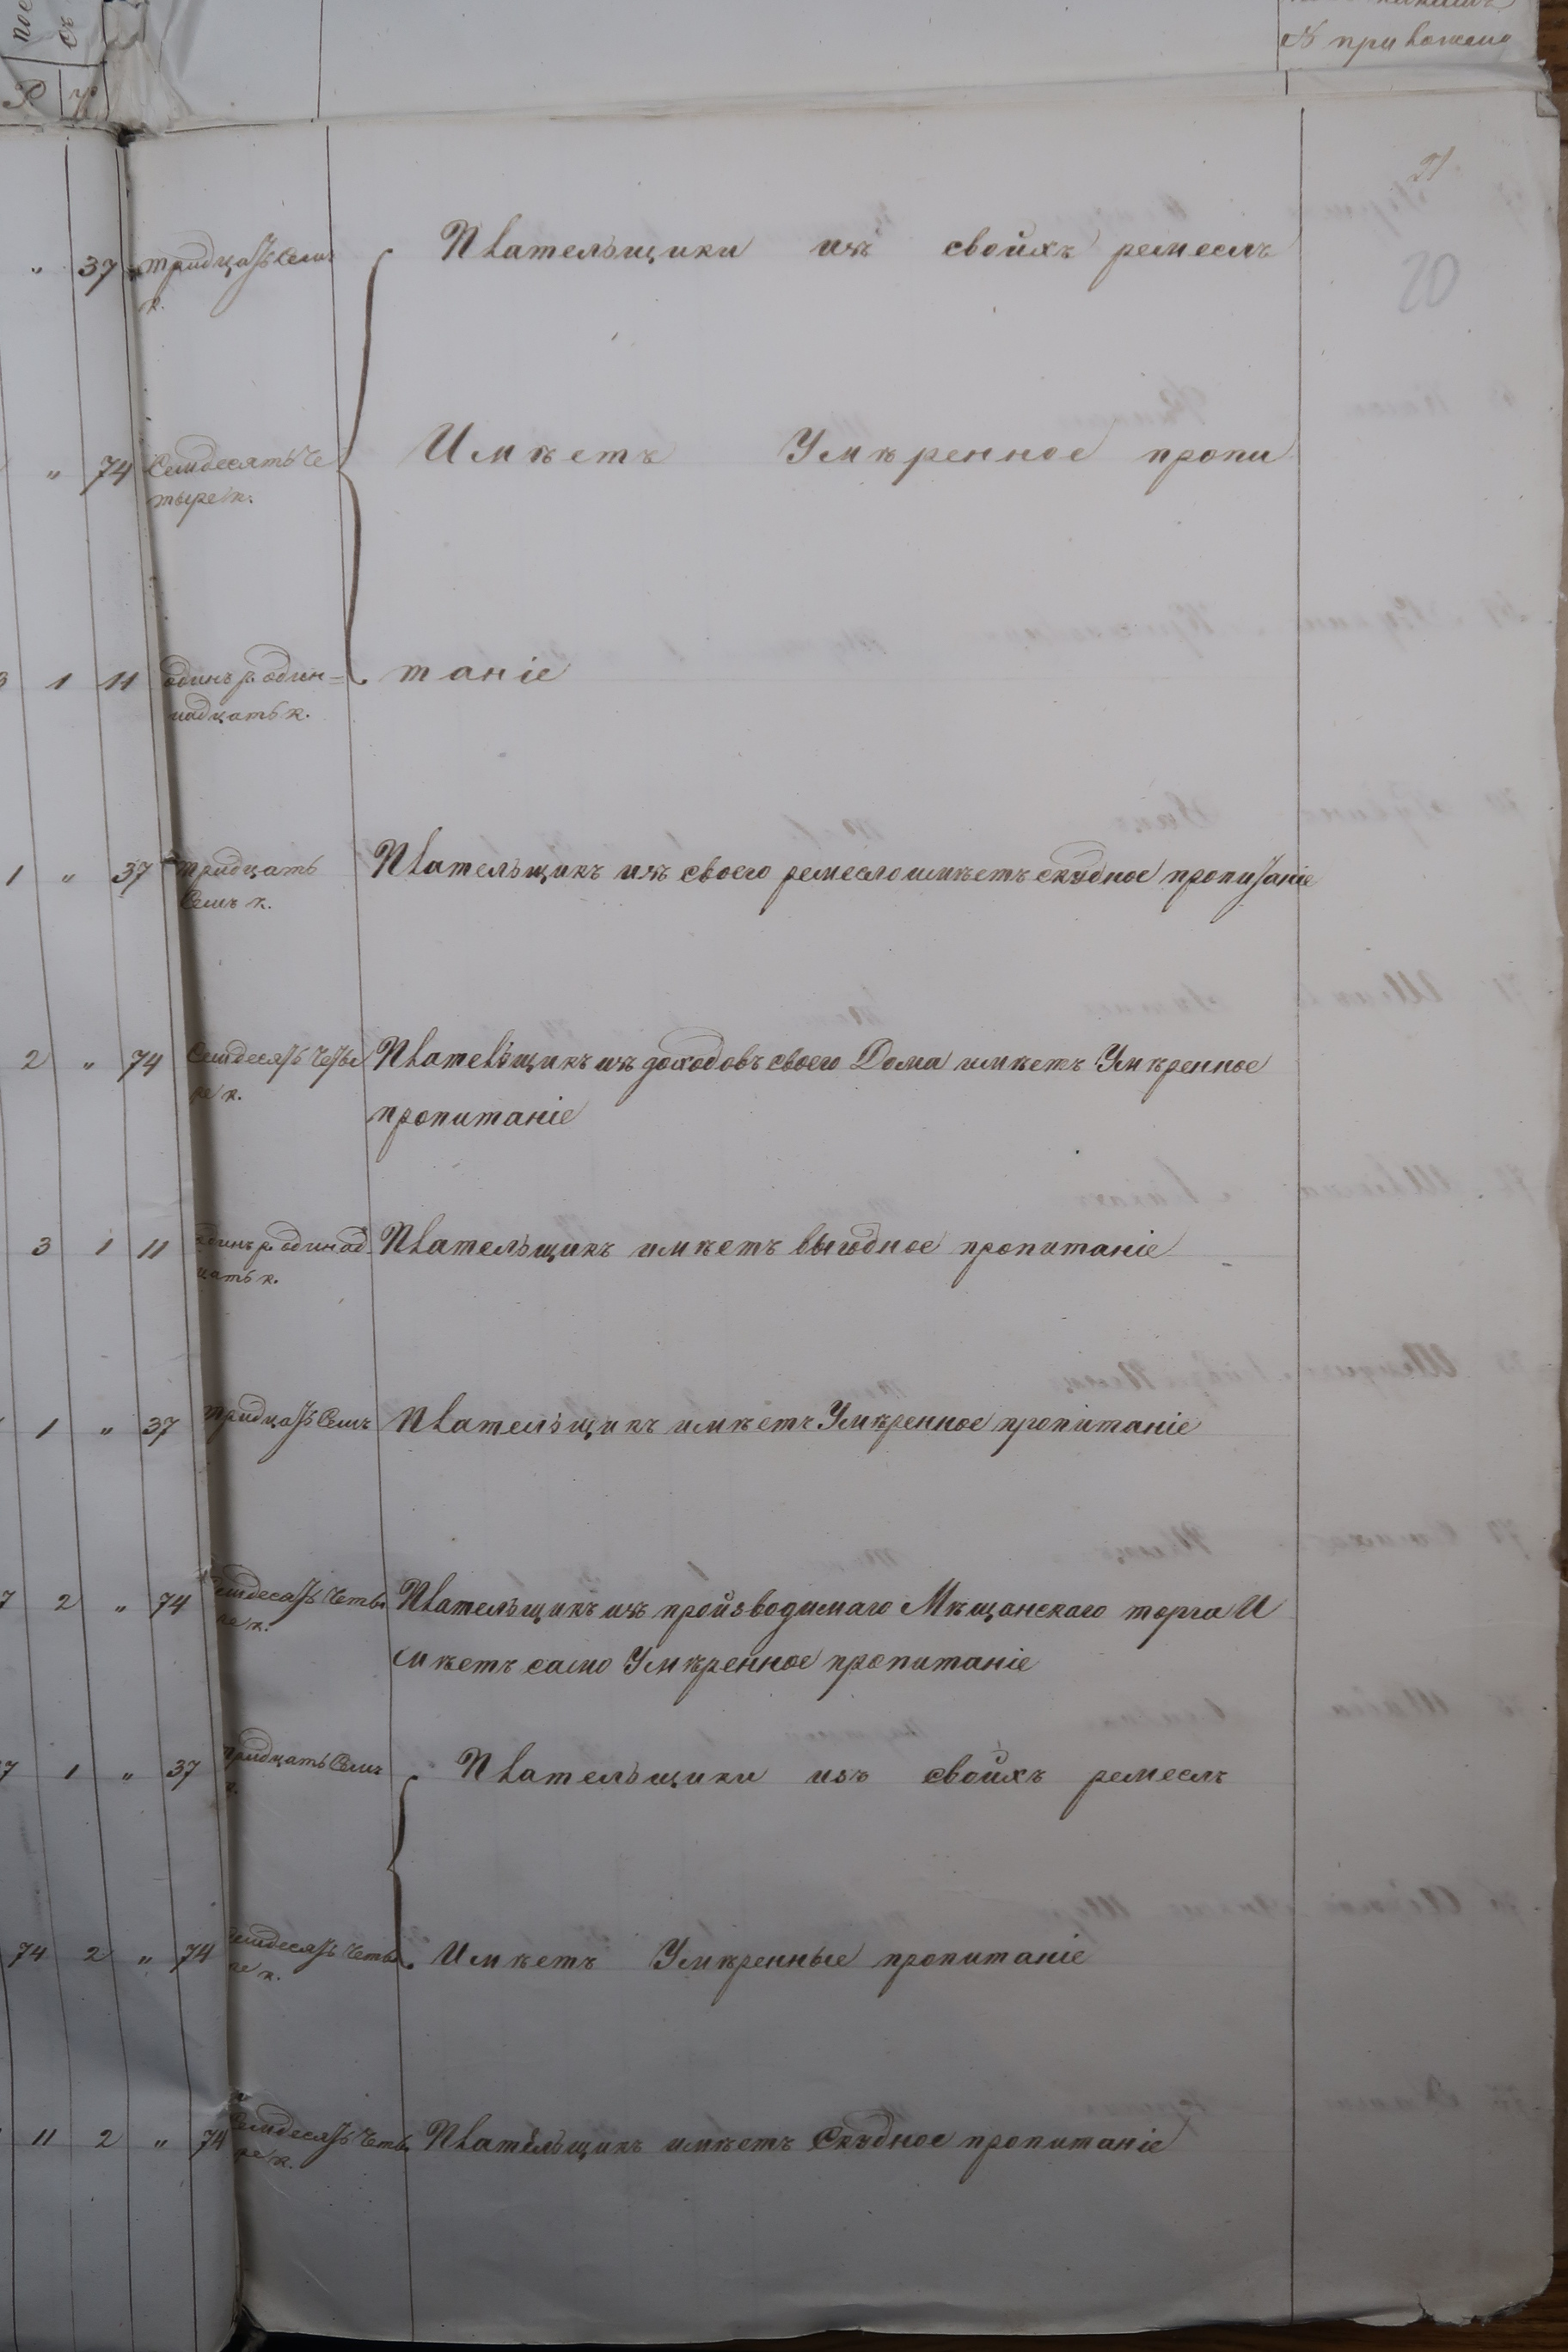 № приложено
21
20
" 37 тридцать семъ Плательщики изъ своихъ ремеслъ
к.
" 74 Семдесять че Имѣетъ Умѣренное пропи
тыре к.
1 11 одинъ р. один= таніе
надцать к.
1 " 37 тридцать Плательщикъ изъ своего ремесло имѣетъ скудное пропитаніе
Семъ к.
2 " 74 Семдесять четы Плательщикъ изъ доходовъ своего Дома имѣетъ Умѣренное
ре к. пропитаніе
3 1 11 одинъ р. одинад Плательщикъ имѣетъ выгодное пропитаніе
цать к.
1 " 37 тридцать Семъ Плательщикъ имѣетъ Умѣренное пропитаніе
7 2 " 74 Семдесять четы Плательщикъ изъ производимаго Мѣщанскаго торга И
ре к. мѣетъ само Умѣренное пропитаніе
7 1 " 37 тридцать Семъ Плательщики изъ своихъ ремеслъ
к.
74 2 " 74 Семдесять четы Имѣетъ Умѣренные пропитаніе
ре к.
11 2 " 74 Семдесять четы Плательщикъ имѣетъ Скудное пропитаніе
ре к.